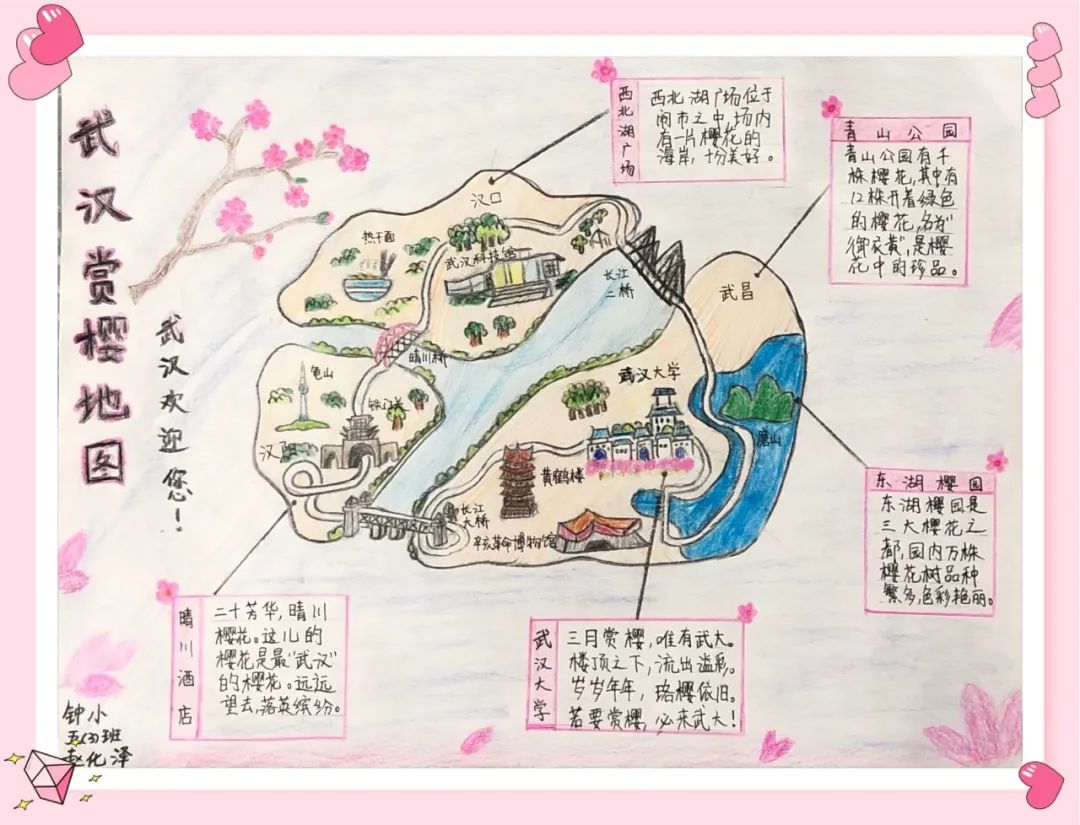 武汉赏樱地图
武汉欢迎您!
西北湖广场
西北湖广场位于
闹市之中,场内
有一片樱花的
海岸,十分美好。
青山公园
青山公园有千
株樱花,其中有
12株开着绿色
的樱花,名为"
御衣黄",是樱
花中的珍品。
汉口
热干面
武汉科技馆
长江
二桥
武昌
晴川桥
龟山
铁门关
汉阳
武汉大学
磨山
黄鹤楼
长江
大桥
辛亥革命博物馆
东湖樱园
东湖樱园是
三大樱花之
都,园内万株
樱花树品种
繁多,色彩艳丽。
晴川酒店
二十芳华,晴川
樱花。这儿的
樱花是最"武汉"
的樱花。远远
望去,落英缤纷。
武汉大学
三月赏樱,唯有武大。
楼顶之下,流出溢彩。
岁岁年年,珞樱依旧。
若要赏樱,必来武大!
钟小
五(3)班
赵化泽